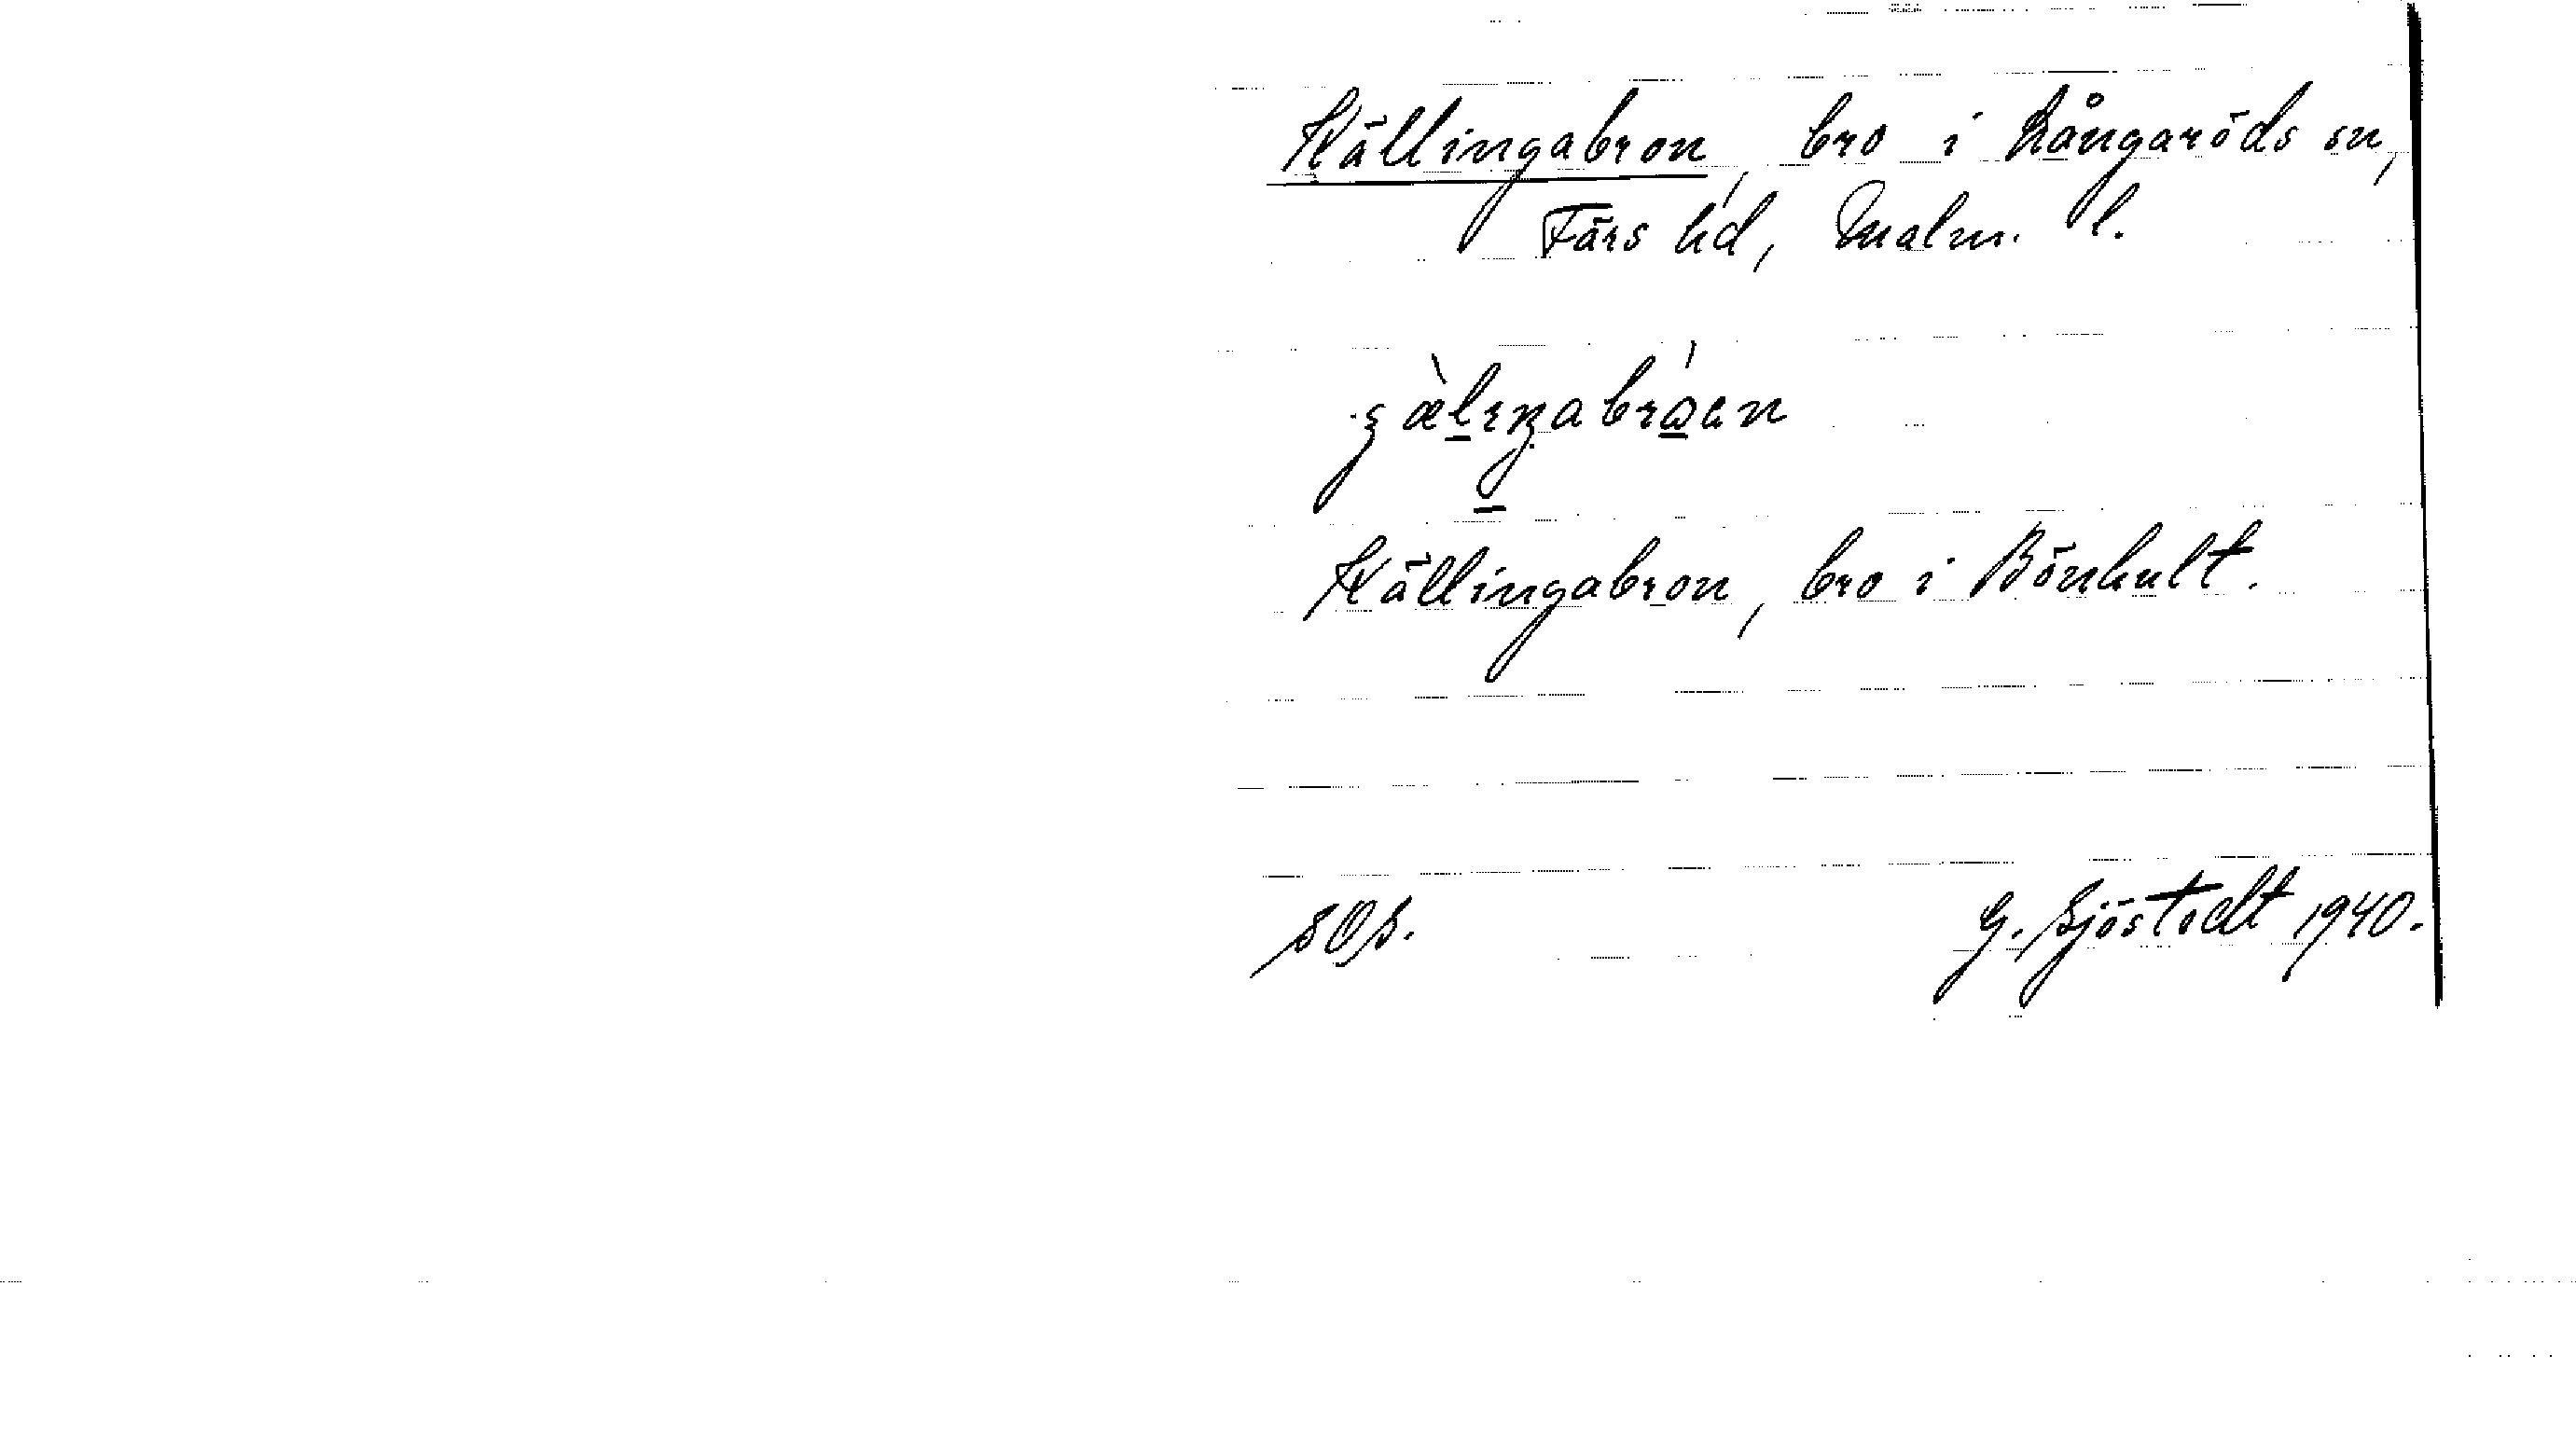 Källingabron, bro i Långaröds sn,
Färs hd, Malm. l.
Källingabron, bro i Bönhult.
SOS.
G. Sjöstedt 1940.